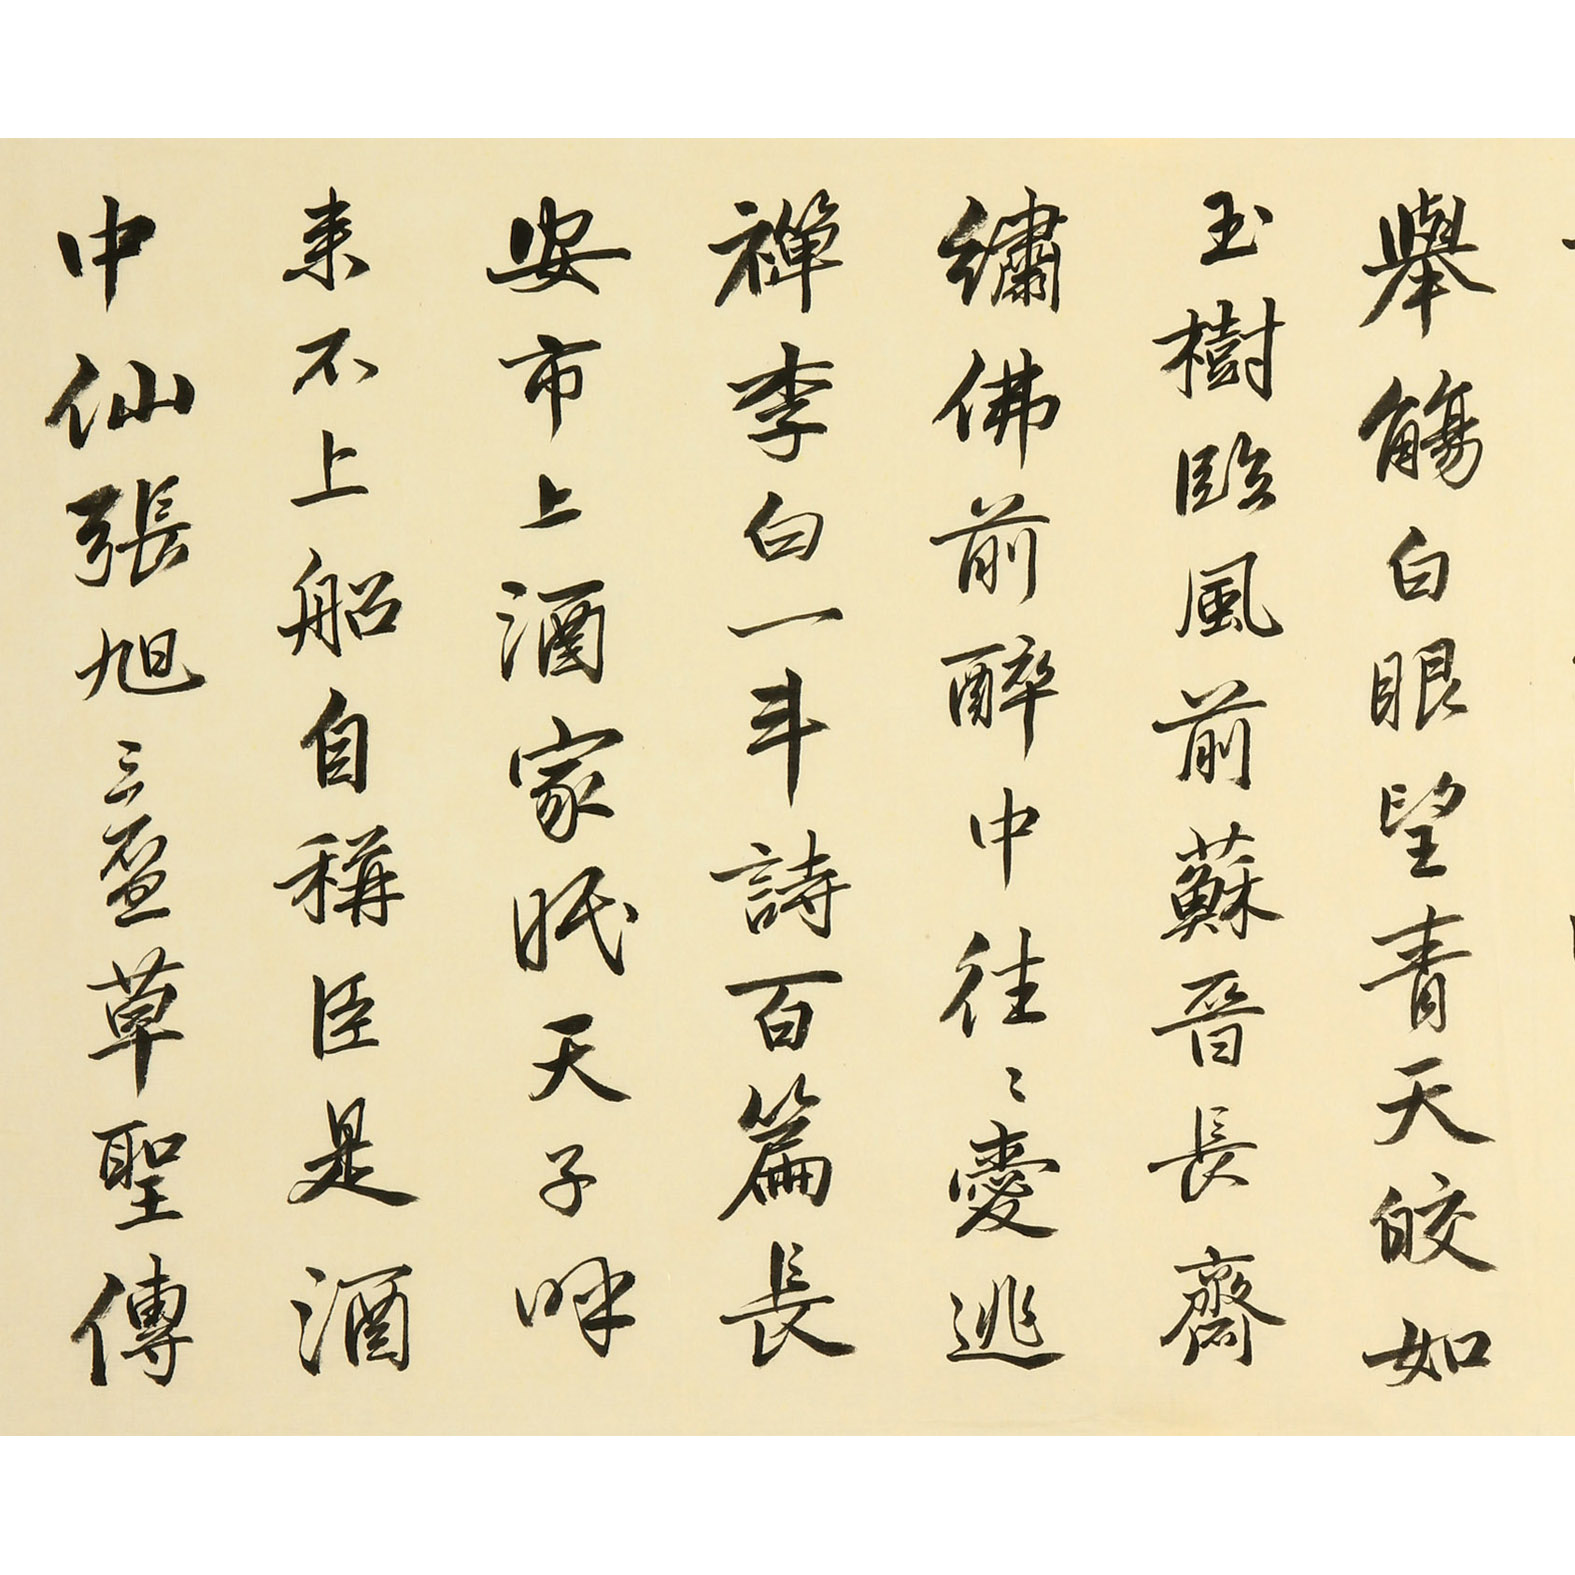 舉觴白眼望青天皎如
玉樹臨風前蘇晉長齋
繡佛前醉中往〻愛逃
禪李白一斗詩百篇長
安市上酒家眠天子呼
來不上船自稱臣是酒
中仙張旭三盃草聖傳